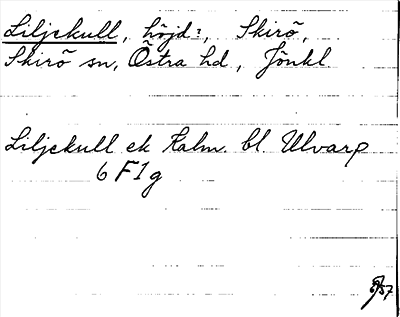 Liljekull, höjd:, Skirö,
Skirö sn, Östra hd, Jönkl.
Liljekull ek Kalm. bl. Ulvarp
6 F1g